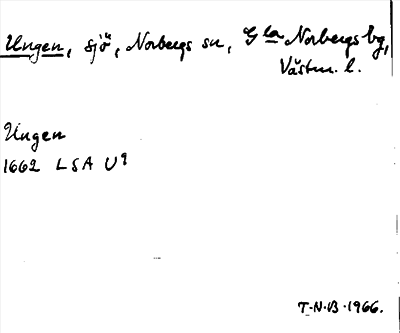 Ungen, sjö, Norbergs sn, Gla Norbergs bg,
Västm. l.
Ungen
1662 LSA U9
T.N.B. 1966.